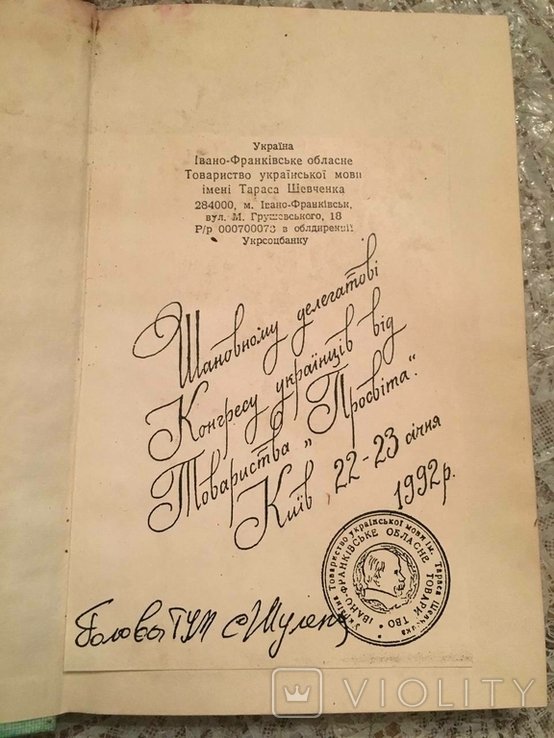 Україна
Івано-Франківське обласне
Товариство української мови
імені Тараса Шевченка
284000, м. Івано-Франківськ,
вул. М. Грушевського, 18
Р/р 000700073 в облдирекції
Укрсоцбанку
Шановному делегатові
Конгресу українців від
Товариства „Просвіта".
Київ, 22-23 січня
1992 р.
Україна Товариство української мови ім. Тараса Шевченка
ІВАНО-ФРАНКІВСЬКЕ ОБЛАСНЕ ТОВАРИСТВО
Голова ТУМ
VIOLITY